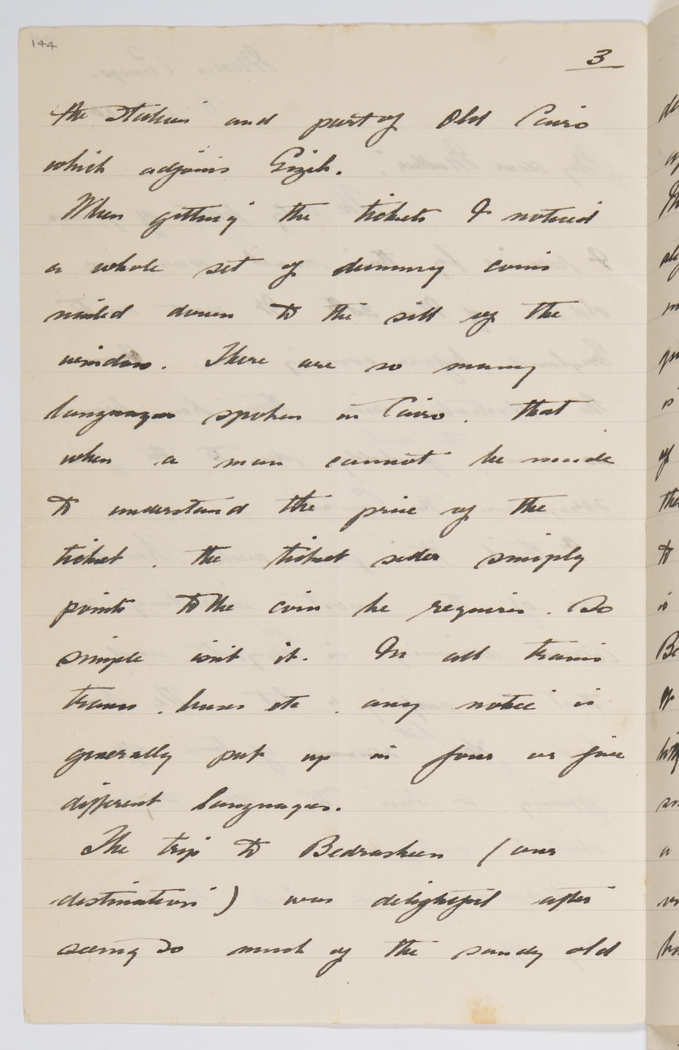 144
3
the Station and part of Old Cairo
which adjoins Gizeh.
When getting the tickets I noticed
a whole set of dummy coins
nailed down to the sill of the
window. There are so many
languages spoken in Cairo. that
when a man cannot be made
to understand the price of the
ticket. the ticket seller simply
points to the coin he requires. So
simple isn't it. In all trains
trams. buses etc. any notice is
generally put up in four or five
different languages.
The trip to Bedrasheen (our
destination) was delightful after
seeing so much of the sandy old